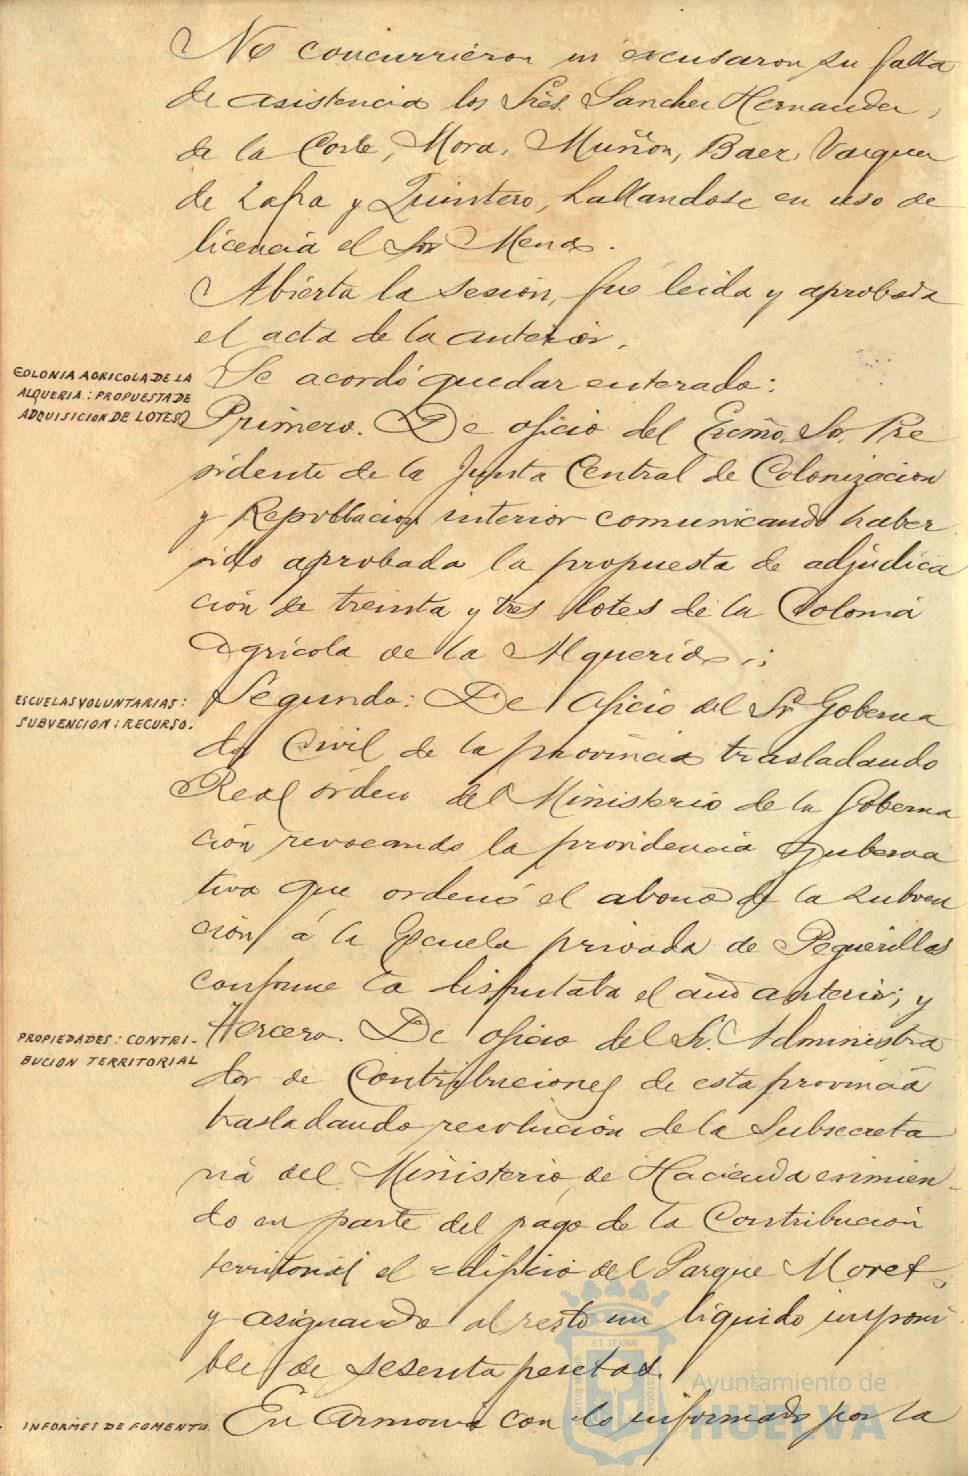 No concurrieron ni excusaron su falta
de asistencia los Sres. Sanchez Hernandez,
de la Corte, Mora, Muñoz, Baez, Vazquez
de Zafra y Quintero, hallandose en uso de
licencia el Sor Mena.
Abierta la sesión, fué leida y aprobada
el acta de la anterior.
COLONIA AGRICOLA DE LA
ALQUERIA: PROPUESTA DE
ADQUISICION DE LOTES
Se acordó quedar enterado:
Primero. De oficio del Excmo. Sr. Pre
sidente de la Junta Central de Colonizacion
y Repoblacion interior comunicando haber
sido aprobada la propuesta de adjudica
ción de treinta y tres lotes de la Colonia
Agrícola de la Alquería;
ESCUELAS VOLUNTARIAS:
SUBVENCION: RECURSO.
Segundo: De oficio del Sr Goberna
dor Civil de la provincia trasladando
Real órden del Ministerio de la Goberna
ción revocando la providencia guberna
tiva que ordenó el abono de la subven
ción á la Escuela privada de Pequerillas
conforme la disfrutaba el año anterior; y
PROPIEDADES: CONTRI-
BUCION TERRITORIAL
tercero. De oficio del Sr. Administra
dor de Contribuciones de esta provincia
trasladando resolución de la Subsecreta
ria del Ministerio de Hacienda eximien-
do en parte del pago de la Contribución
territorial el edificio del Parque Moret
y asignando al resto un líquido imponi
ble de sesenta pesetas.
INFORMES DE FOMENTO.
En armonia con lo informado por la
Ayuntamiento de
HUELVA